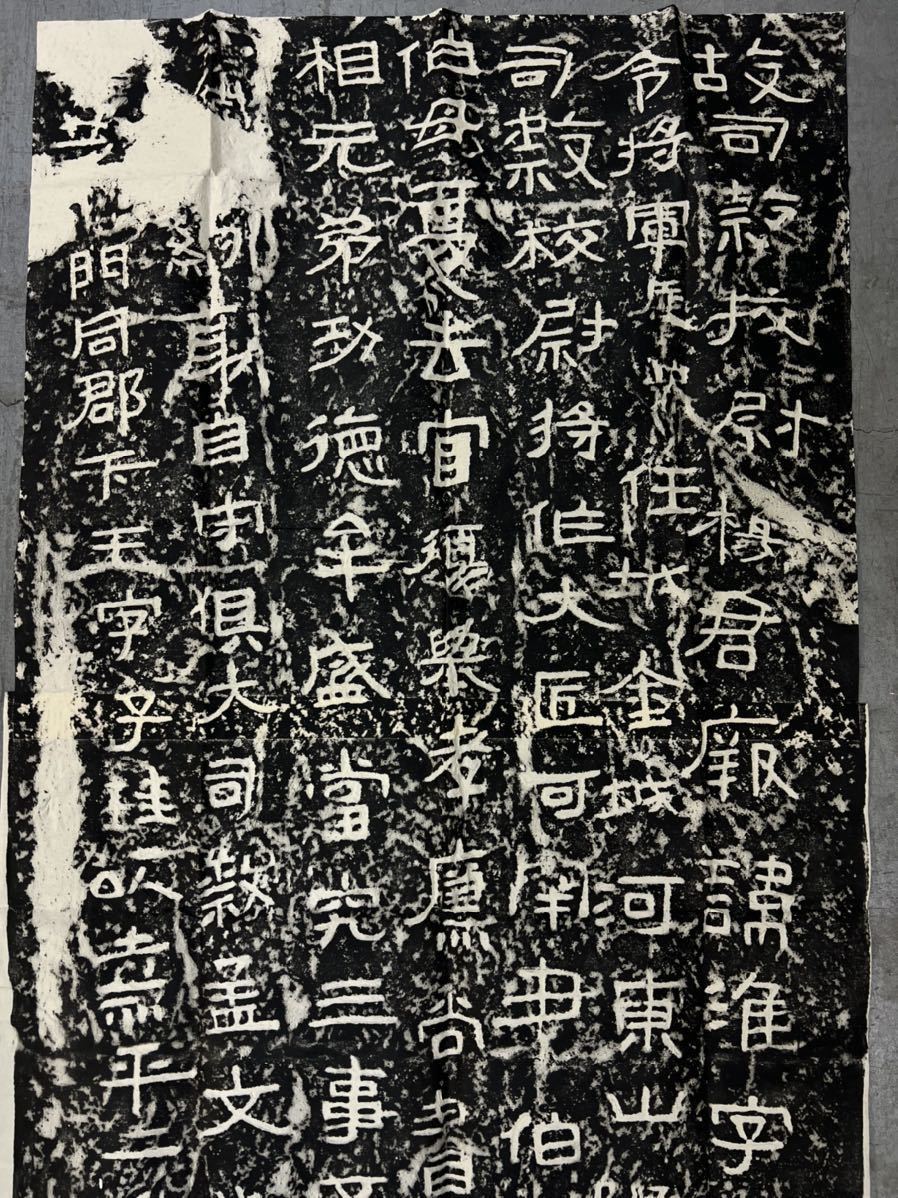 故司隸校尉楊君厥諱淮字
令將軍長史任城金城河東山
司隸校尉將作大匠河南尹伯
伯母憂去官復舉孝廉尚書
相元弟功德牟盛當究三事
約身自守俱大司隸孟文
門同郡卞玉字子珪以熹平二